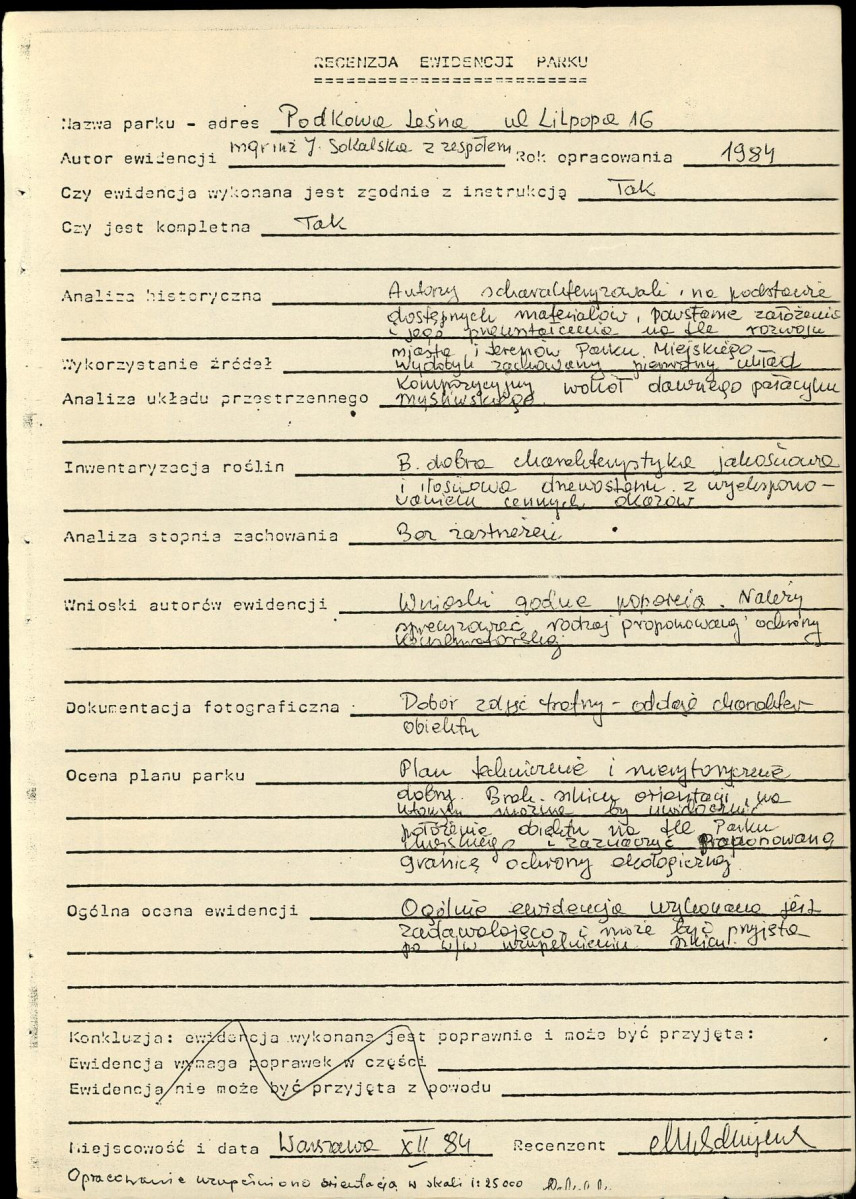 RECENZJA EWIDENCJI PARKU
Nazwa parku - adres Podkowa Leśna ul Lilpopa 16
Autor ewidencji mgr inż J. Sokalska z zespołem Rok opracowania 1984
Czy ewidencja wykonana jest zgodnie z instrukcją Tak
Czy jest kompletna Tak
Analiza historyczna Autorzy scharakteryzowali, na podstawie
dostępnych materiałów, powstanie założenia
i jego przekształcenia na tle rozwoju
miasta i terenów Parku Miejskiego
Wykorzystanie źródeł Wydobyli zachowany pierwotny układ
Analiza układu przestrzennego kompozycyjny wokół dawnego pałacyku
myśliwskiego.
Inwentaryzacja roślin B. dobra charakterystyka jakościowa
i ilościowa drzewostanu z wyekspono-
waniem cennych okazów
Analiza stopnia zachowania Bez zastrzeżeń
Wnioski autorów ewidencji Wnioski godne poparcia. Należy
sprecyzować rodzaj proponowanej ochrony
konserwatorskiej.
Dokumentacja fotograficzna Dobór zdjęć trafny - oddaje charakter
obiektu
Ocena planu parku Plan technicznie i merytorycznie
dobry. Brak szkicu orientacji, na
którym można by uwidocznić
położenie obiektu na tle Parku
Miejskiego i zaznaczyć proponowaną
granicę ochrony ekologicznej.
Ogólna ocena ewidencji Ogólnie ewidencja wykonana jest
zadawalająco i może być przyjęta
po w/w uzupełnieniu szkicu.
Konkluzja: ewidencja wykonana jest poprawnie i może być przyjęta:
Ewidencja wymaga poprawek w części
Ewidencja nie może być przyjęta z powodu
Miejscowość i data Warszawa XII 84 Recenzent
Opracowanie uzupełniono orientacją w skali 1:25000